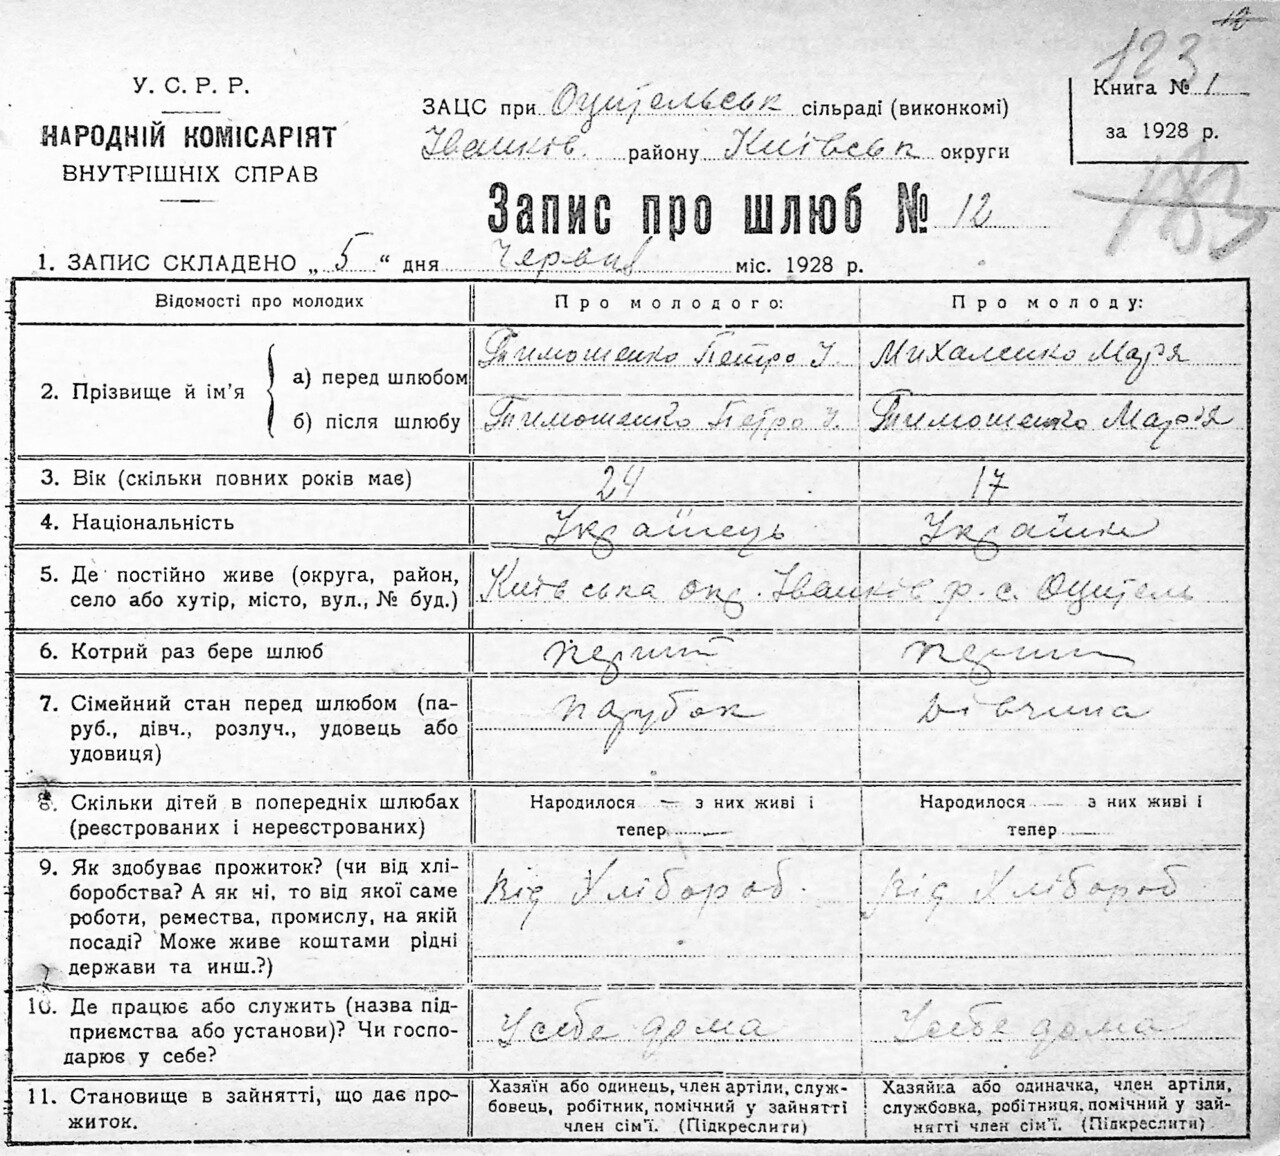 12
123
У. С. Р. Р.
НАРОДНІЙ КОМІСАРІЯТ
ВНУТРІШНІХ СПРАВ
ЗАЦС при Оцительськ сільраді (виконкомі)
Іванків. району Київськ округи
Книга № 1
за 1928 р.
183
Запис про шлюб № 12
1. ЗАПИС СКЛАДЕНО „ 5 “ дня Червня міс. 1928 р.
Відомості про молодих Про молодого: Про молоду:
2. Прізвище й ім’я
а) перед шлюбом Тимошенко Петро І. Михаленко Марія
б) після шлюбу Тимошенко Петро І. Тимошенко Марія
3. Вік (скільки повних років має) 24 17
4. Національність Українець Українка
5. Де постійно живе (округа, район,
село або хутір, місто, вул., № буд.) Київська окр. Іванків р. с. Оцитель
6. Котрий раз бере шлюб перший перший
7. Сімейний стан перед шлюбом (па-
руб., дівч., розлуч., удовець або
удовиця) парубок дівчина
8. Скільки дітей в попередніх шлюбах
(реєстрованих і нереєстрованих) Народилося — з них живі і
тепер — Народилося — з них живі і
тепер —
9. Як здобуває прожиток? (чи від хлі-
боробства? А як ні, то від якої саме
роботи, ремества, промислу, на якій
посаді? Може живе коштами рідні
держави та инш.?) Від Хлібороб. Від Хлібороб
10. Де працює або служить (назва під-
приємства або установи)? Чи госпо-
дарює у себе? У себе дома У себе дома
11. Становище в зайнятті, що дає про-
житок. Хазяїн або одинець, член артіли, служ-
бовець, робітник, помічний у зайнятті
член сім’ї. (Підкреслити) Хазяйка або одиначка, член артіли,
службовка, робітниця, помічний у зай-
нятті член сім’ї. (Підкреслити)